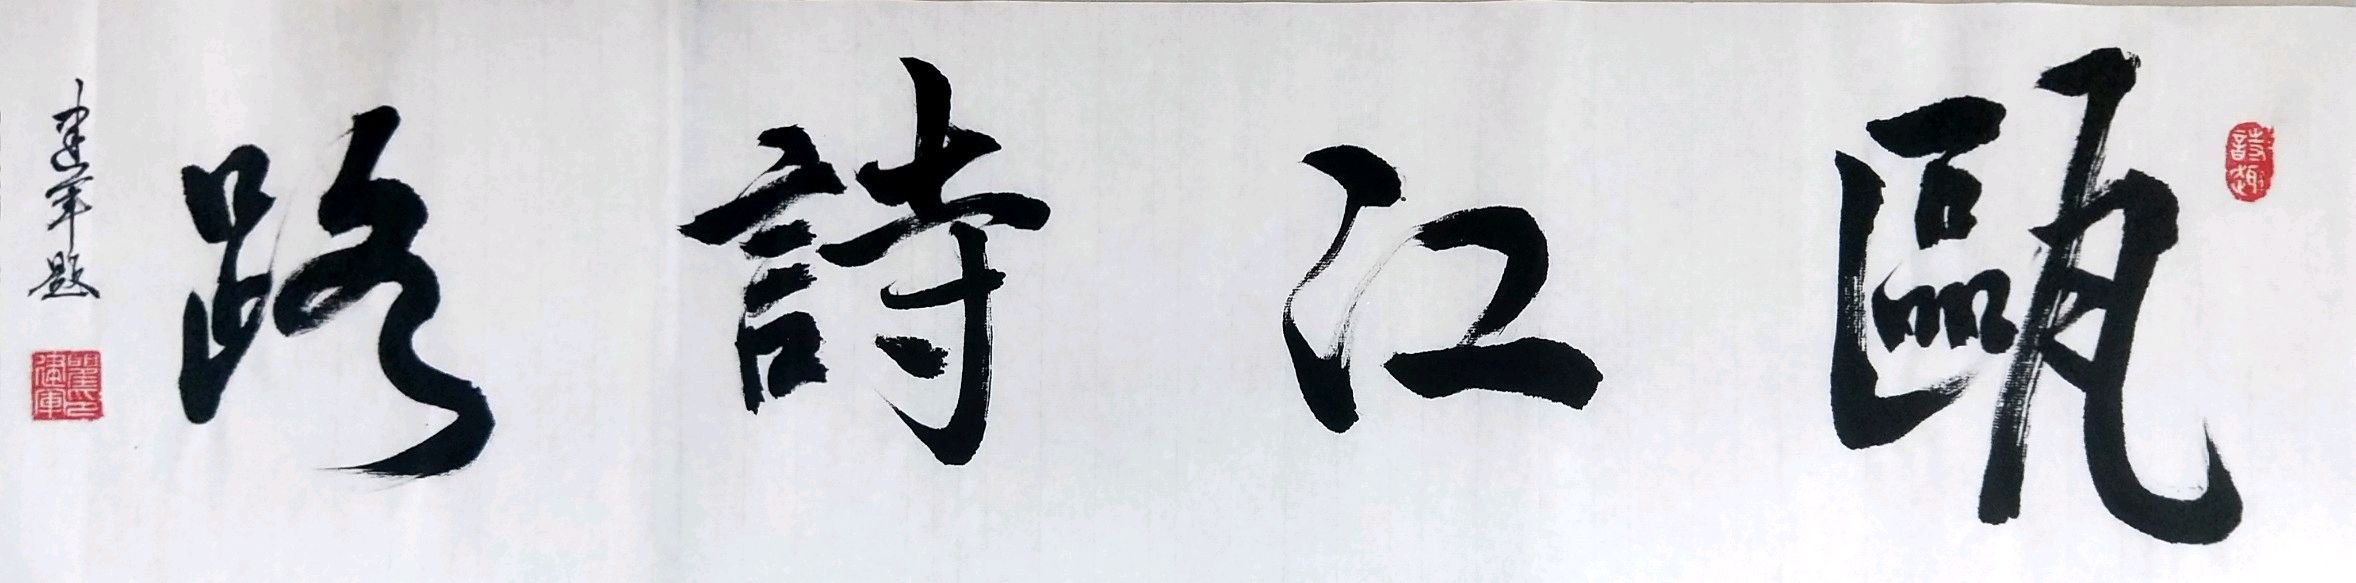 甌江詩路
建軍題